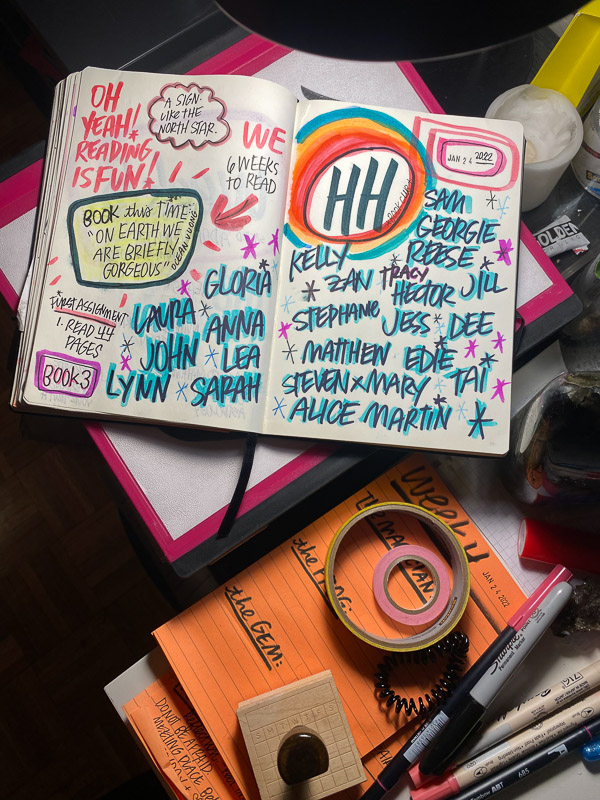 OH
YEAH!
READING
IS FUN!
A SIGN-
LIKE THE
NORTH STAR.
WE
6 WEEKS
TO READ
BOOK this TIME:
"ON EARTH WE
ARE BRIEFLY
GORGEOUS"
OCEAN VUONG
FIRST ASSIGNMENT
1. READ 44
PAGES
BOOK 3
GLORIA
LAURA
ANNA
JOHN
LEA
LYNN
SARAH
HH
BOOK CLUB
JAN 24 2022
SAM
GEORGIE
KELLY
REESE
ZAN
TRACY
HECTOR
JILL
STEPHANIE
JESS
DEE
MATTHEW
EDIE
STEVEN x MARY
TAI
ALICE
MARTIN
OLDEN
Weekly
JAN 24 2022
the FROG:
the GEM:
S M T W T F S
DO NOT BE AFRAID
Sharpie
Permanent Marker
Tombow ABT
685